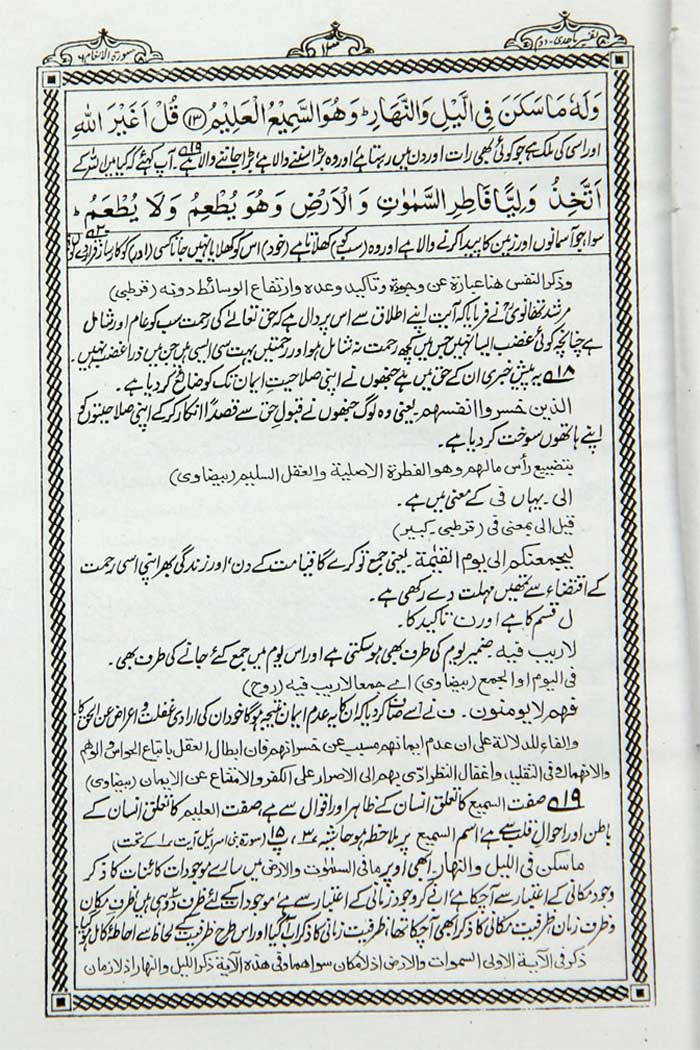 تفسیر ماجدی - دوم
سورة الانعام ۶
وَلَهٗ مَا سَكَنَ فِي الَّيْلِ وَالنَّهَارِ ؕ وَهُوَ السَّمِيْعُ الْعَلِيْمُ ﴿۱۳﴾ قُلْ اَغَيْرَ اللّٰهِ
اور اسی کی ملک ہے جو کوئی بھی رات اور دن میں رہتا ہے اور وہ بڑا سننے والا ہے بڑا جاننے والا ہے ۱۹ آپ کہئے کہ کیا میں اللہ کے
اَتَّخِذُ وَلِيًّا فَاطِرِ السَّمٰوٰتِ وَالْاَرْضِ وَهُوَ يُطْعِمُ وَلَا يُطْعَمُ ؕ
سوا جو آسمانوں اور زمین کا پیدا کرنے والا ہے اور وہ (سب کو) کھلاتا ہے (خود) اس کو کھلایا نہیں جاتا کسی (اور) کو کارساز قرار دے لوں ۲۰
وذكر النفس هنا عبارة عن وجوده وتاكيد وعده وارتفاع الوسائط دونه (قرطبی)
مرشد تھانویؒ نے فرمایا کہ آیت اپنے اطلاق سے اس پر دال ہے کہ حق تعالے کی رحمت سب کو عام اور شامل
ہے چنانچہ کوئی غضب ایسا نہیں جس میں کچھ رحمت نہ شامل ہو اور رحمتیں بہت سی ایسی ہیں جن میں ذرا غضب نہیں۔
۱۸ یہ پیش خبری ان کے حق میں ہے جنھوں نے اپنی صلاحیت ایمان تک کو ضائع کر دیا ہے۔
الذین خسروا انفسهم یعنی وہ لوگ جنھوں نے قبول حق سے قصداً انکار کر کے اپنی صلاحیتوں کو
اپنے ہاتھوں سوخت کر دیا ہے۔
بتضييع رأس مالهم وهو الفطرة الاصلية والعقل السليم (بیضاوی)
الی۔ یہاں فی کے معنی میں ہے۔
قیل الی بمعنی فی (قرطبی۔ کبیر)
لیجمعنکم الی یوم القیٰمة۔ یعنی جمع تو کرے گا قیامت کے دن، اور زندگی بھر اپنی اسی رحمت
کے اقتضاء سے تمھیں مہلت دے رکھی ہے۔
ل قسم کا ہے اور ن تاکید کا۔
لاریب فیه۔ ضمیر یوم کی طرف بھی ہو سکتی ہے اور اس یوم میں جمع کئے جانے کی طرف بھی۔
فی الیوم او الجمع (بیضاوی) اے جمعا لا ریب فیه (روح)
فهم لا یومنون۔ ف نے اسے صاف کر دیا کہ ان کا یہ عدم ایمان نتیجہ ہوگا خود ان کی ارادی غفلت و اعراض عن الحق کا
والفاء للدلالة علی ان عدم ایمانهم مسبب عن خسرانهم فان ابطال العقل باتباع الحواس والوهم
والانهماک فی التقلید واغفال النظر ادّی بهم الی الاصرار علی الکفر والامتناع عن الایمان (بیضاوی)
۱۹ صفت السمیع کا تعلق انسان کے ظاہر اور اقوال سے ہے، صفت العلیم کا تعلق انسان کے
باطن اور احوال قلب سے ہے، اسم السمیع پر ملاحظہ ہو حاشیہ ۳، پ ۱۵ (سورۂ بنی اسرائیل آیت ۱ کے تحت)
ما سکن فی اللیل والنهار۔ ابھی اوپر ما فی السمٰوٰت والارض میں سارے موجودات کائنات کا ذکر
وجود مکانی کے اعتبار سے آچکا ہے، اب ذکر وجود زمانی کے اعتبار سے ہے، موجودات کے لئے ظرف دو ہی ہیں ظرف مکان
و ظرف زمان، ظرفیت مکانی کا ذکر ابھی آچکا تھا، ظرفیت زمانی کا ذکر اب آگیا اور اس طرح ظرفیت کے لحاظ سے احاطۂ کامل ہو گیا
ذکر فی الآیة الاولی السموات والارض اذ لا مکان سواهما وفی هذه الآیة ذکر اللیل والنهار اذ لا زمان